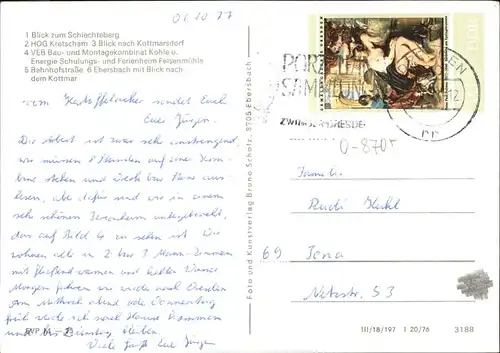 01.10.77
1 Blick zum Schlechteberg
2 HOG Kretscham 3 Blick nach Kottmarsdorf
4 VEB Bau- und Montagekombinat Kohle u.
Energie Schulungs- und Ferienheim Felsenmühle
5 Bahnhofstraße 6 Ebersbach mit Blick nach
dem Kottmar
vom sendet Euch
Euer Jürgen.
Die Arbeit ist zwar sehr anstrengend,
wir müssen 8 Stunden auf
stehen und
lesen, aber dafür sind wir in einem
sehr schönen Ferienheim untergebracht,
das auf Bild 4 zu sehen ist. Wir
wohnen alle in 2 bis 3 Mann-Zimmern
mit fließend warmen und kalten Wasser
Morgen fahren wir wieder nach Dresden
Am Mittwoch abend oder Donnerstag
früh werde ich nach Hause kommen
und bis Dienstag bleiben.
Viele Grüße Euer Jürgen
Foto und Kunstverlag Bruno Scholz, 8705 Ebersbach
DDR
ZWINGER DRESDEN
O-8705
Familie
Rudi
69 Jena
53
III/18/197 I 20/76 3188